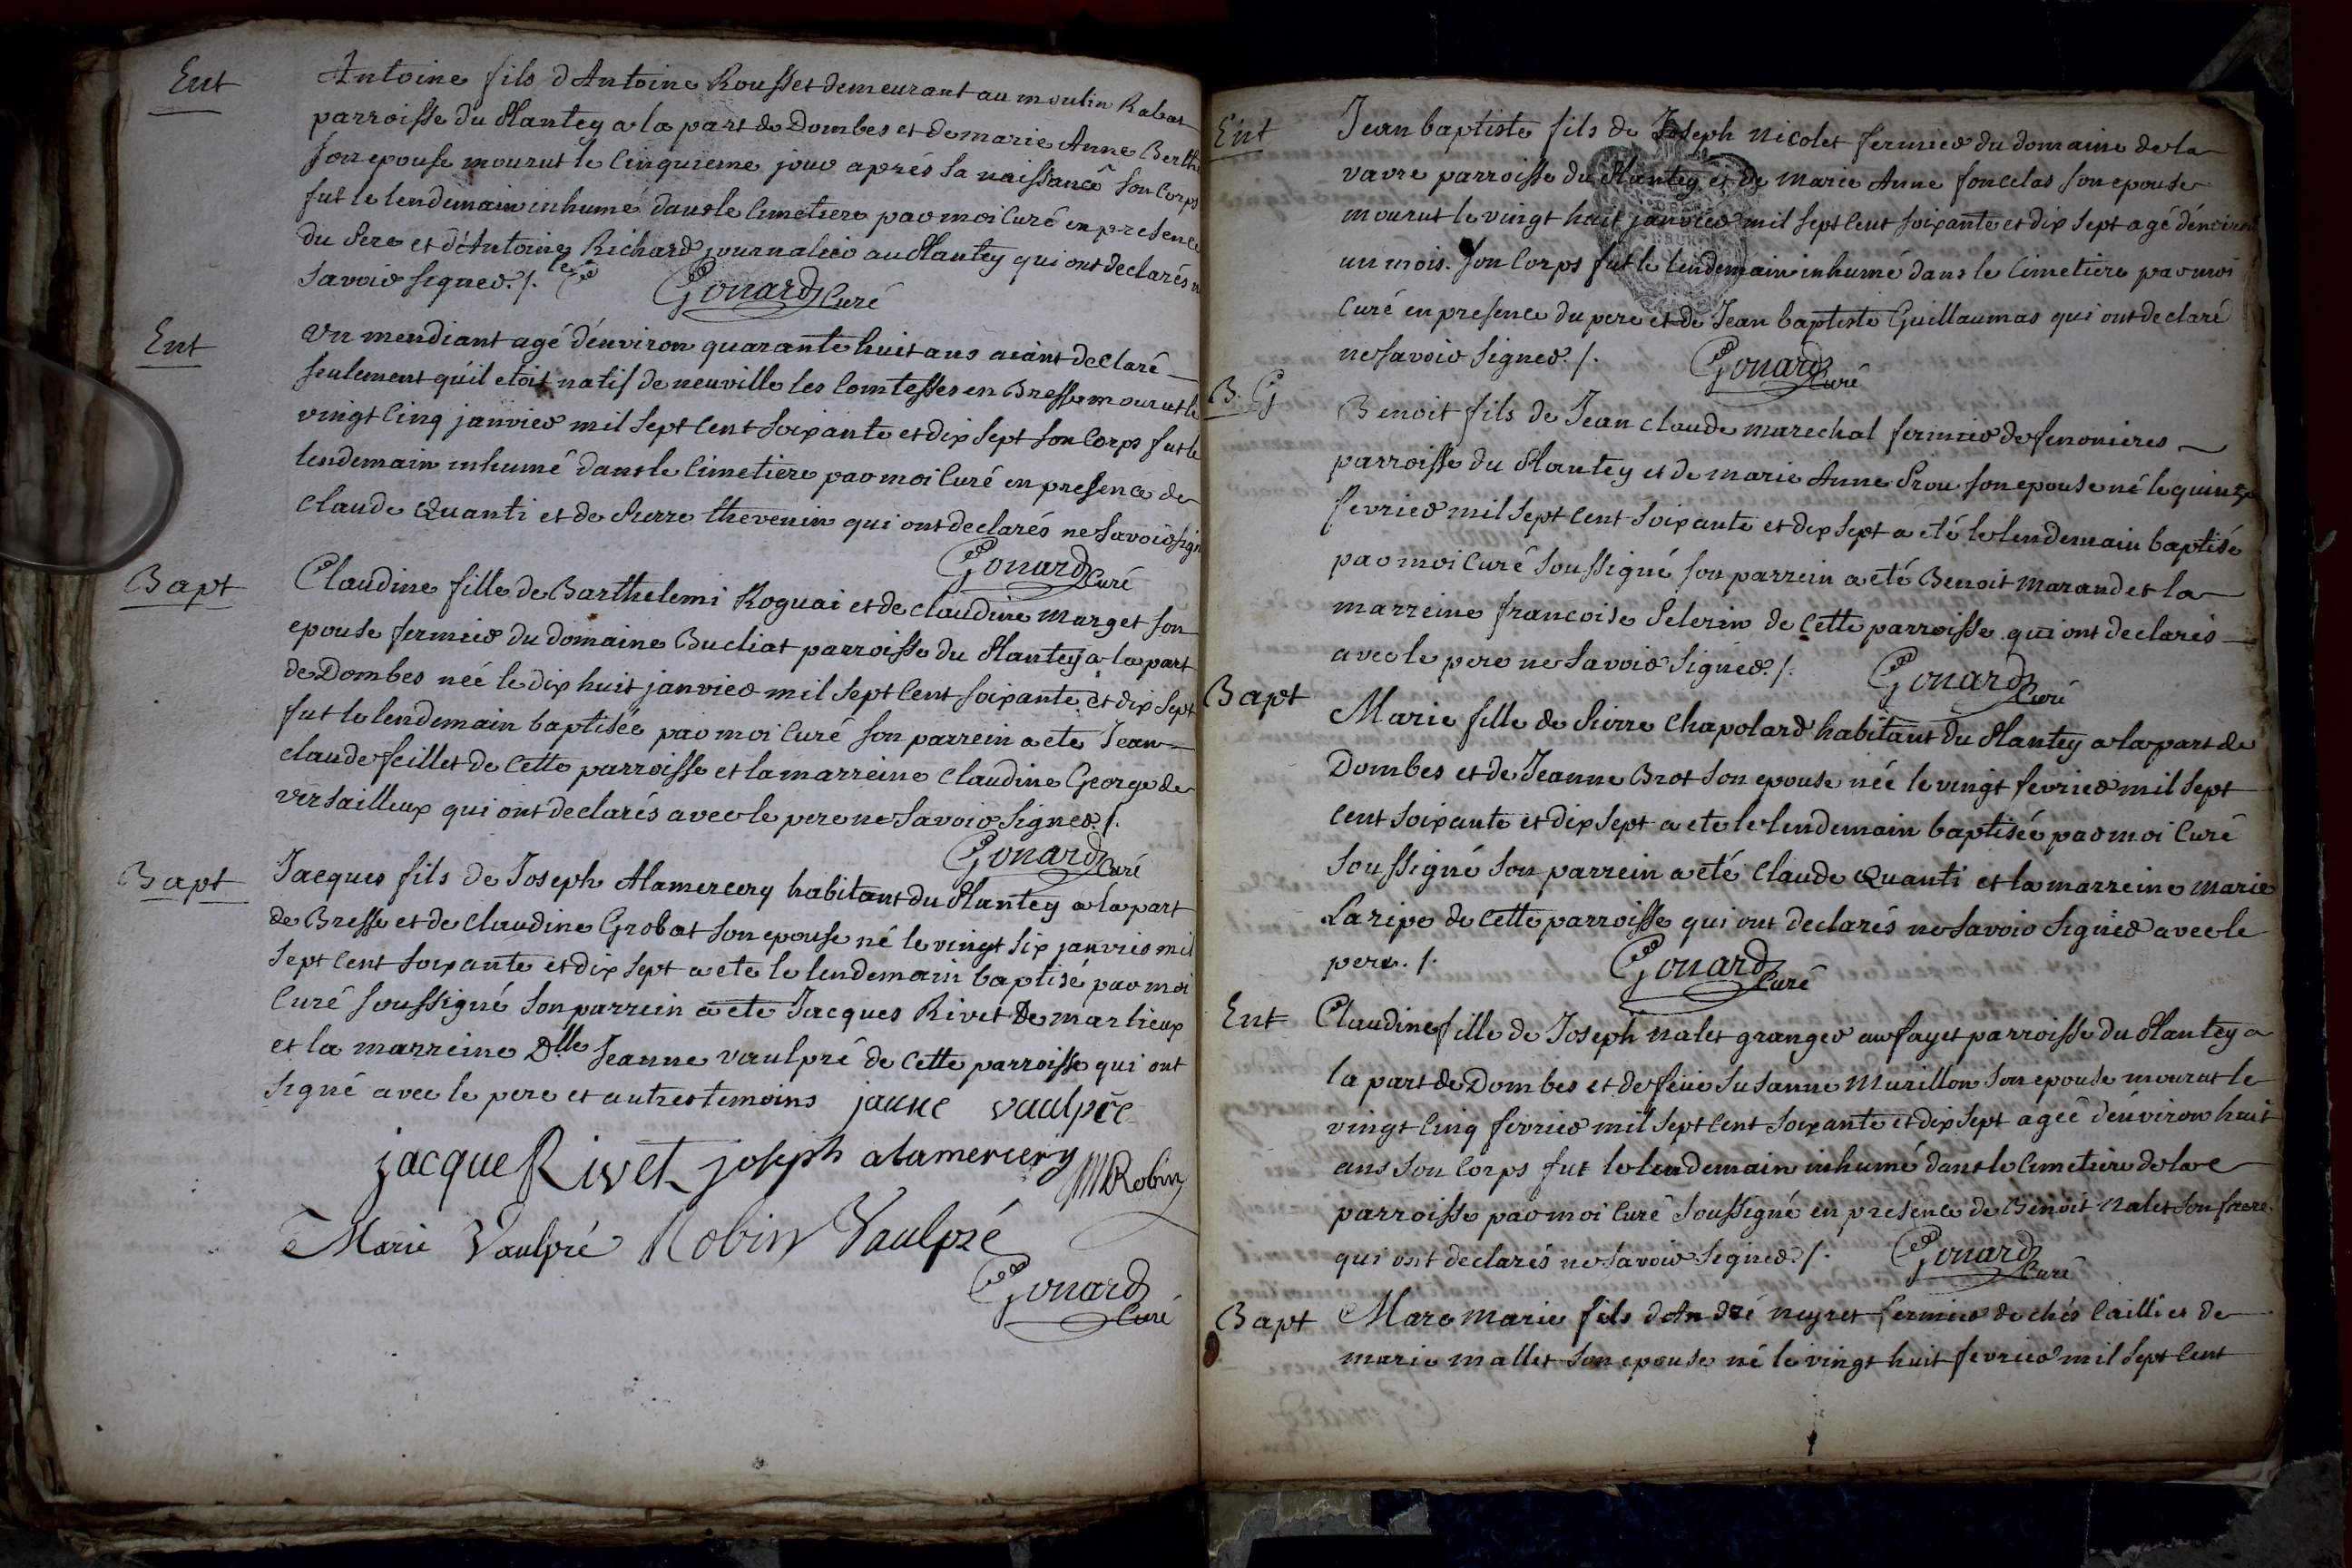 Ent
Antoine fils d'Antoine Rousset demeurant au moulin Rabat
parroisse du Plantey a la part de Dombes et de marie Anne Berth
son epouse mourut le cinquieme jour aprés sa naissance son corps
fut le lendemain inhumé dans le cimetiere par moi curé en presence
du Pere et d'Antoine Richard journalier au Plantey qui ont declarés n
savoir signer./.
Gonard Curé
Ent
un mendiant agé d'environ quarante huit ans aiant declaré
seulement qu'il etoit natif de neuville les comtesses en Bresse mourut le
vingt cinq janvier mil sept cent soixante et dix sept son corps fut le
lendemain inhumé dans le cimetiere par moi curé en presence de
claude Quanti et de Pierre thevenin qui ont declarés ne savoir sign
Gonard Curé
Bapt
Claudine fille de Barthelemi Roguai et de claudine murget son
epouse fermier du domaine Bucliat parroisse du Plantey a la part
de Dombes née le dix huit janvier mil sept cent soixante et dix sept
fut le lendemain baptisée par moi curé son parrein a ete Jean
claude feillet de cette parroisse et la marreine claudine George de
versailleux qui ont declarés avec le pere ne savoir signer./.
Gonard Curé
Bapt
Jacques fils de Joseph Alamercery habitant du Plantey a la part
de Bresse et de claudine Grobat son epouse né le vingt six janvier mil
sept cent soixante et dix sept a eté le lendemain baptisé par moi
curé soussigné son parrein a ete Jacques Rivet De marlieux
et la marreine Dlle Jeanne vaulpré de cette parroisse qui ont
signé avec le pere et autres temoins janne vaulpre
jacque Rivet joseph alamercery Robin
Marie Vaulpré Robin Vaulpré
Gonard
Curé
Ent
Jean baptiste fils de Joseph nicolet fermier du domaine de la
vavre parroisse du Plantey et de marie Anne foncelas son epouse
mourut le vingt huit janvier mil sept cent soixante et dix sept agé d'environ
un mois. son corps fut le lendemain inhumé dans le cimetiere par moi
curé en presence du pere et de Jean baptiste Guillaumas qui ont declaré
ne savoir signer./.
Gonard Curé
B. G
Benoit fils de Jean claude marechal fermier de fenonieres
parroisse du Plantey et de marie Anne Prou son epouse né le quinze
fevrier mil sept cent soixante et dix sept a eté le lendemain baptisé
par moi curé soussigné son parrein a eté Benoit marand et la
marreine francoise Pelerin de cette parroisse qui ont declarés
avec le pere ne savoir signer./.
Gonard Curé
Bapt
Marie fille de Pierre Chapolard habitant du Plantey a la part de
Dombes et de Jeanne Brot son epouse née le vingt fevrier mil sept
cent soixante et dix sept a ete le lendemain baptisée par moi curé
soussigné son parrein a eté claude Quanti et la marreine marie
Laripe de cette parroisse qui ont declarés ne savoir signer avec le
pere./.
Gonard Curé
Ent
Claudine fille de Joseph nalet granger au fayet parroisse du Plantey a
la part de Dombes et de feüe Susanne Murillon son epouse mourut le
vingt cinq fevrier mil sept cent soixante et dix sept agée d'environ huit
ans son corps fut le lendemain inhumé dans le cimetiere de la
parroisse par moi curé soussigné en presence de Benoit nalet son frere
qui ont declarés ne savoir signer./.
Gonard Curé
Bapt
Marc marie fils d'André neyret fermier de chés Caillie et de
marie mallet son epouse né le vingt huit fevrier mil sept cent